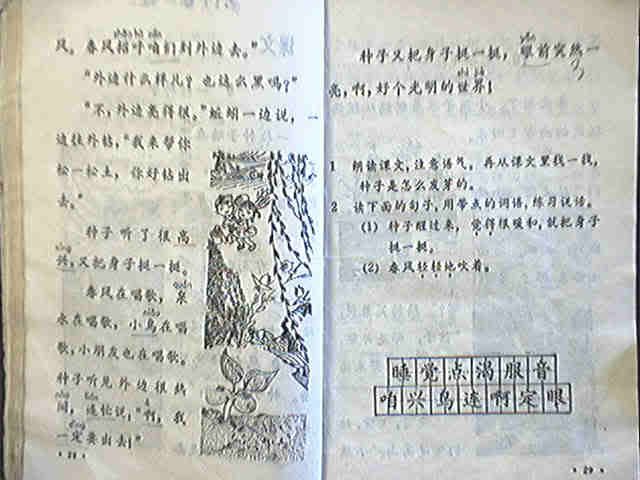 风。春风招呼咱们到外边去。"
"外边什么样儿？也这么黑吗？"
"不,外边亮得很。"蚯蚓一边说,一
边往外钻,"我来帮你
松一松土,你好钻出
去。"
种子听了很高
xìng
兴,又把身子挺一挺。
春风在唱歌,泉
水在唱歌,小鸟在唱
歌,小朋友也在唱歌。
种子听见外边很热
闹,连忙说:"啊,我
一定要出去!"
28
种子又把身子挺一挺,眼前突然一
shì jiè
亮,啊,好个光明的世界!
1 朗读课文,注意语气。再从课文里找一找,
种子是怎么发芽的。
2 读下面的句子,用带点的词语,练习说话。
(1) 种子醒过来,觉得很暖和,就把身子
挺一挺。
(2) 春风轻轻地吹着。
睡觉点渴服音
咱兴鸟连啊定眼
29